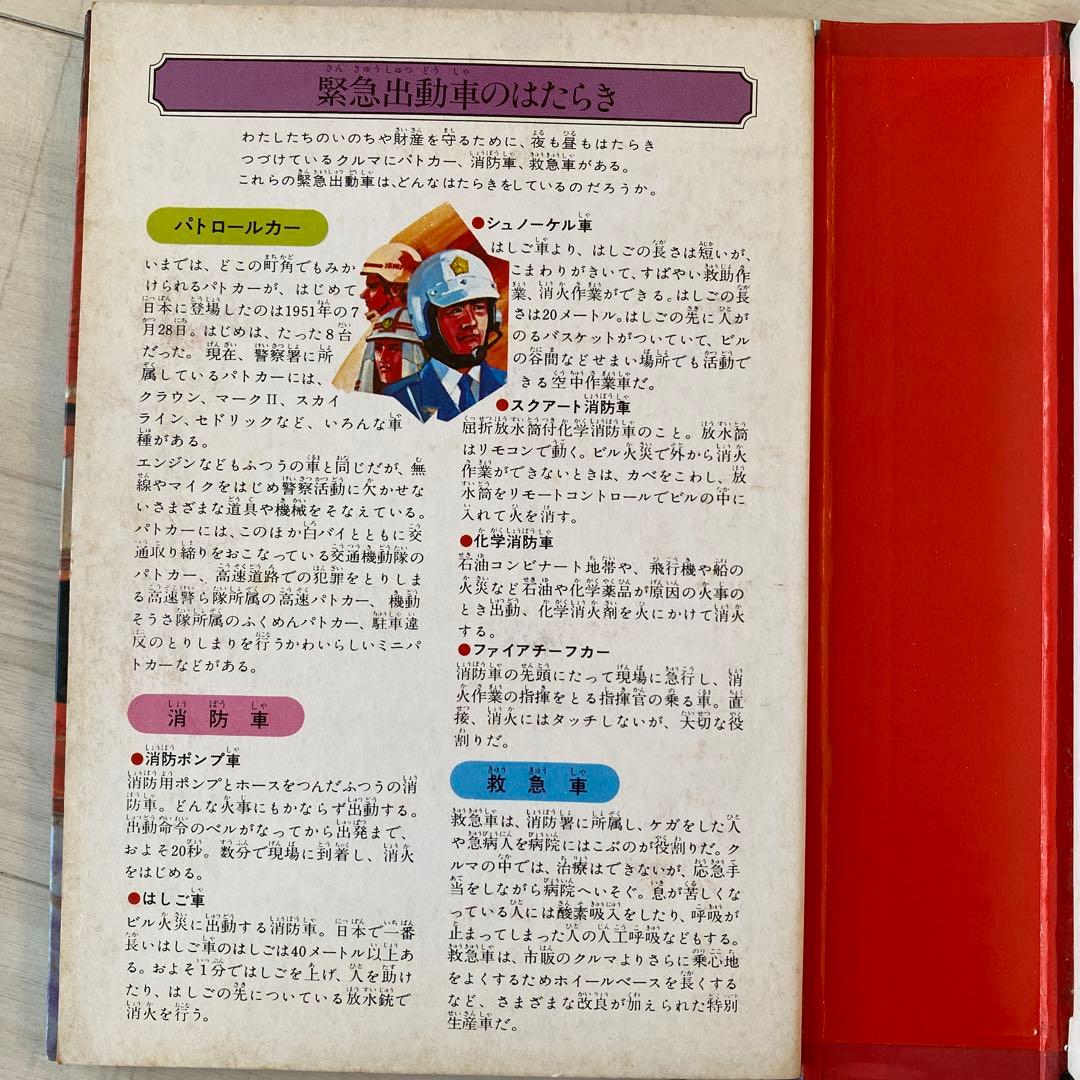 緊急出動車のはたらき
わたしたちのいのちや財産を守るために、夜も昼もはたらき
つづけているクルマにパトカー、消防車、救急車がある。
これらの緊急出動車は、どんなはたらきをしているのだろうか。
パトロールカー
いまでは、どこの町角でもみか
けられるパトカーが、はじめて
日本に登場したのは1951年の7
月28日。はじめは、たった8台
だった。現在、警察署に所
属しているパトカーには、
クラウン、マークII、スカイ
ライン、セドリックなど、いろんな車
種がある。
エンジンなどもふつうの車と同じだが、無
線やマイクをはじめ警察活動に欠かせな
いさまざまな道具や機械をそなえている。
パトカーには、このほか白バイとともに交
通取り締りをおこなっている交通機動隊の
パトカー、高速道路での犯罪をとりしま
る高速警ら隊所属の高速パトカー、機動
そうさ隊所属のふくめんパトカー、駐車違
反のとりしまりを行うかわいらしいミニパ
トカーなどがある。
消防車
●消防ポンプ車
消防用ポンプとホースをつんだふつうの消
防車。どんな火事にもかならず出動する。
出動命令のベルがなってから出発まで、
およそ20秒。数分で現場に到着し、消火
をはじめる。
●はしご車
ビル火災に出動する消防車。日本で一番
長いはしご車のはしごは40メートル以上あ
る。およそ1分ではしごを上げ、人を助け
たり、はしごの先についている放水銃で
消火を行う。
●シュノーケル車
はしご車より、はしごの長さは短いが、
こまわりがきいて、すばやい救助作
業、消火作業ができる。はしごの長
さは20メートル。はしごの先に人が
のるバスケットがついていて、ビル
の谷間などせまい場所でも活動で
きる空中作業車だ。
●スクアート消防車
屈折放水筒付化学消防車のこと。放水筒
はリモコンで動く。ビル火災で外から消火
作業ができないときは、カベをこわし、放
水筒をリモートコントロールでビルの中に
入れて火を消す。
●化学消防車
石油コンビナート地帯や、飛行機や船の
火災など石油や化学薬品が原因の火事の
とき出動、化学消火剤を火にかけて消火
する。
●ファイアチーフカー
消防車の先頭にたって現場に急行し、消
火作業の指揮をとる指揮官の乗る車。直
接、消火にはタッチしないが、大切な役
割りだ。
救急車
救急車は、消防署に所属し、ケガをした人
や急病人を病院にはこぶのが役割りだ。ク
ルマの中では、治療はできないが、応急手
当をしながら病院へいそぐ。息が苦しくな
っている人には酸素吸入をしたり、呼吸が
止まってしまった人の人工呼吸などもする。
救急車は、市販のクルマよりさらに乗心地
をよくするためホイールベースを長くする
など、さまざまな改良が加えられた特別
生産車だ。